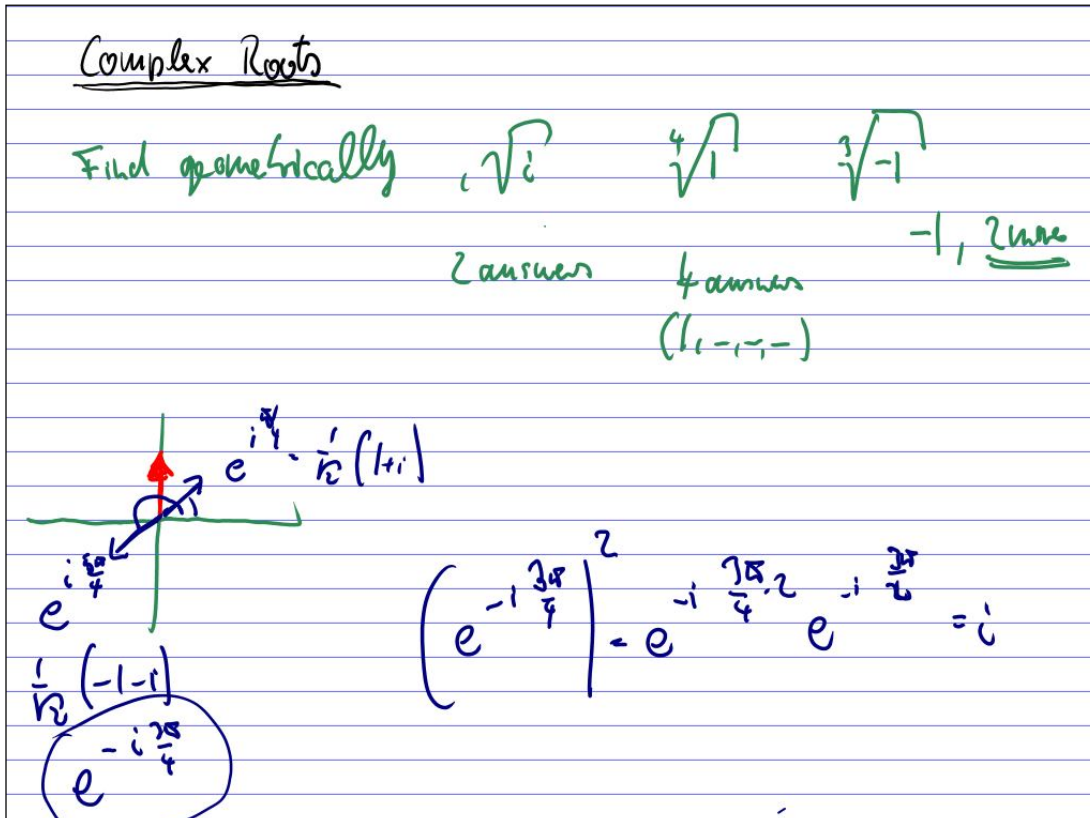 Complex Roots
Find geometrically , √i ⁴√1 ³√-1
-1, 2 more
2 answers 4 answers
(1, -, -, -)
e^{iπ/4} = 1/√2 (1+i)
e^{i5π/4}
1/√2 (-1-i)
e^{-i3π/4}
(e^{-i3π/4})^2 = e^{-i3π/4·2} e^{-i3π/2} = i